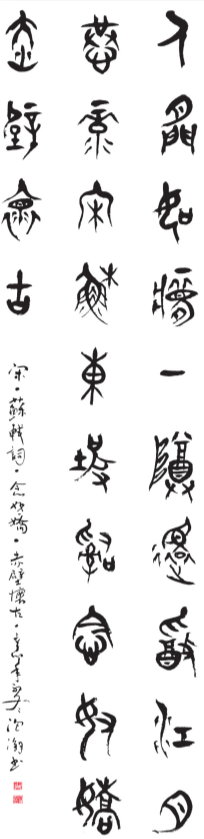 人間如夢一樽還酹江月
宋蘇東坡詞念奴嬌
赤壁懷古
宋·蘇軾詞·念奴嬌·赤壁懷古·